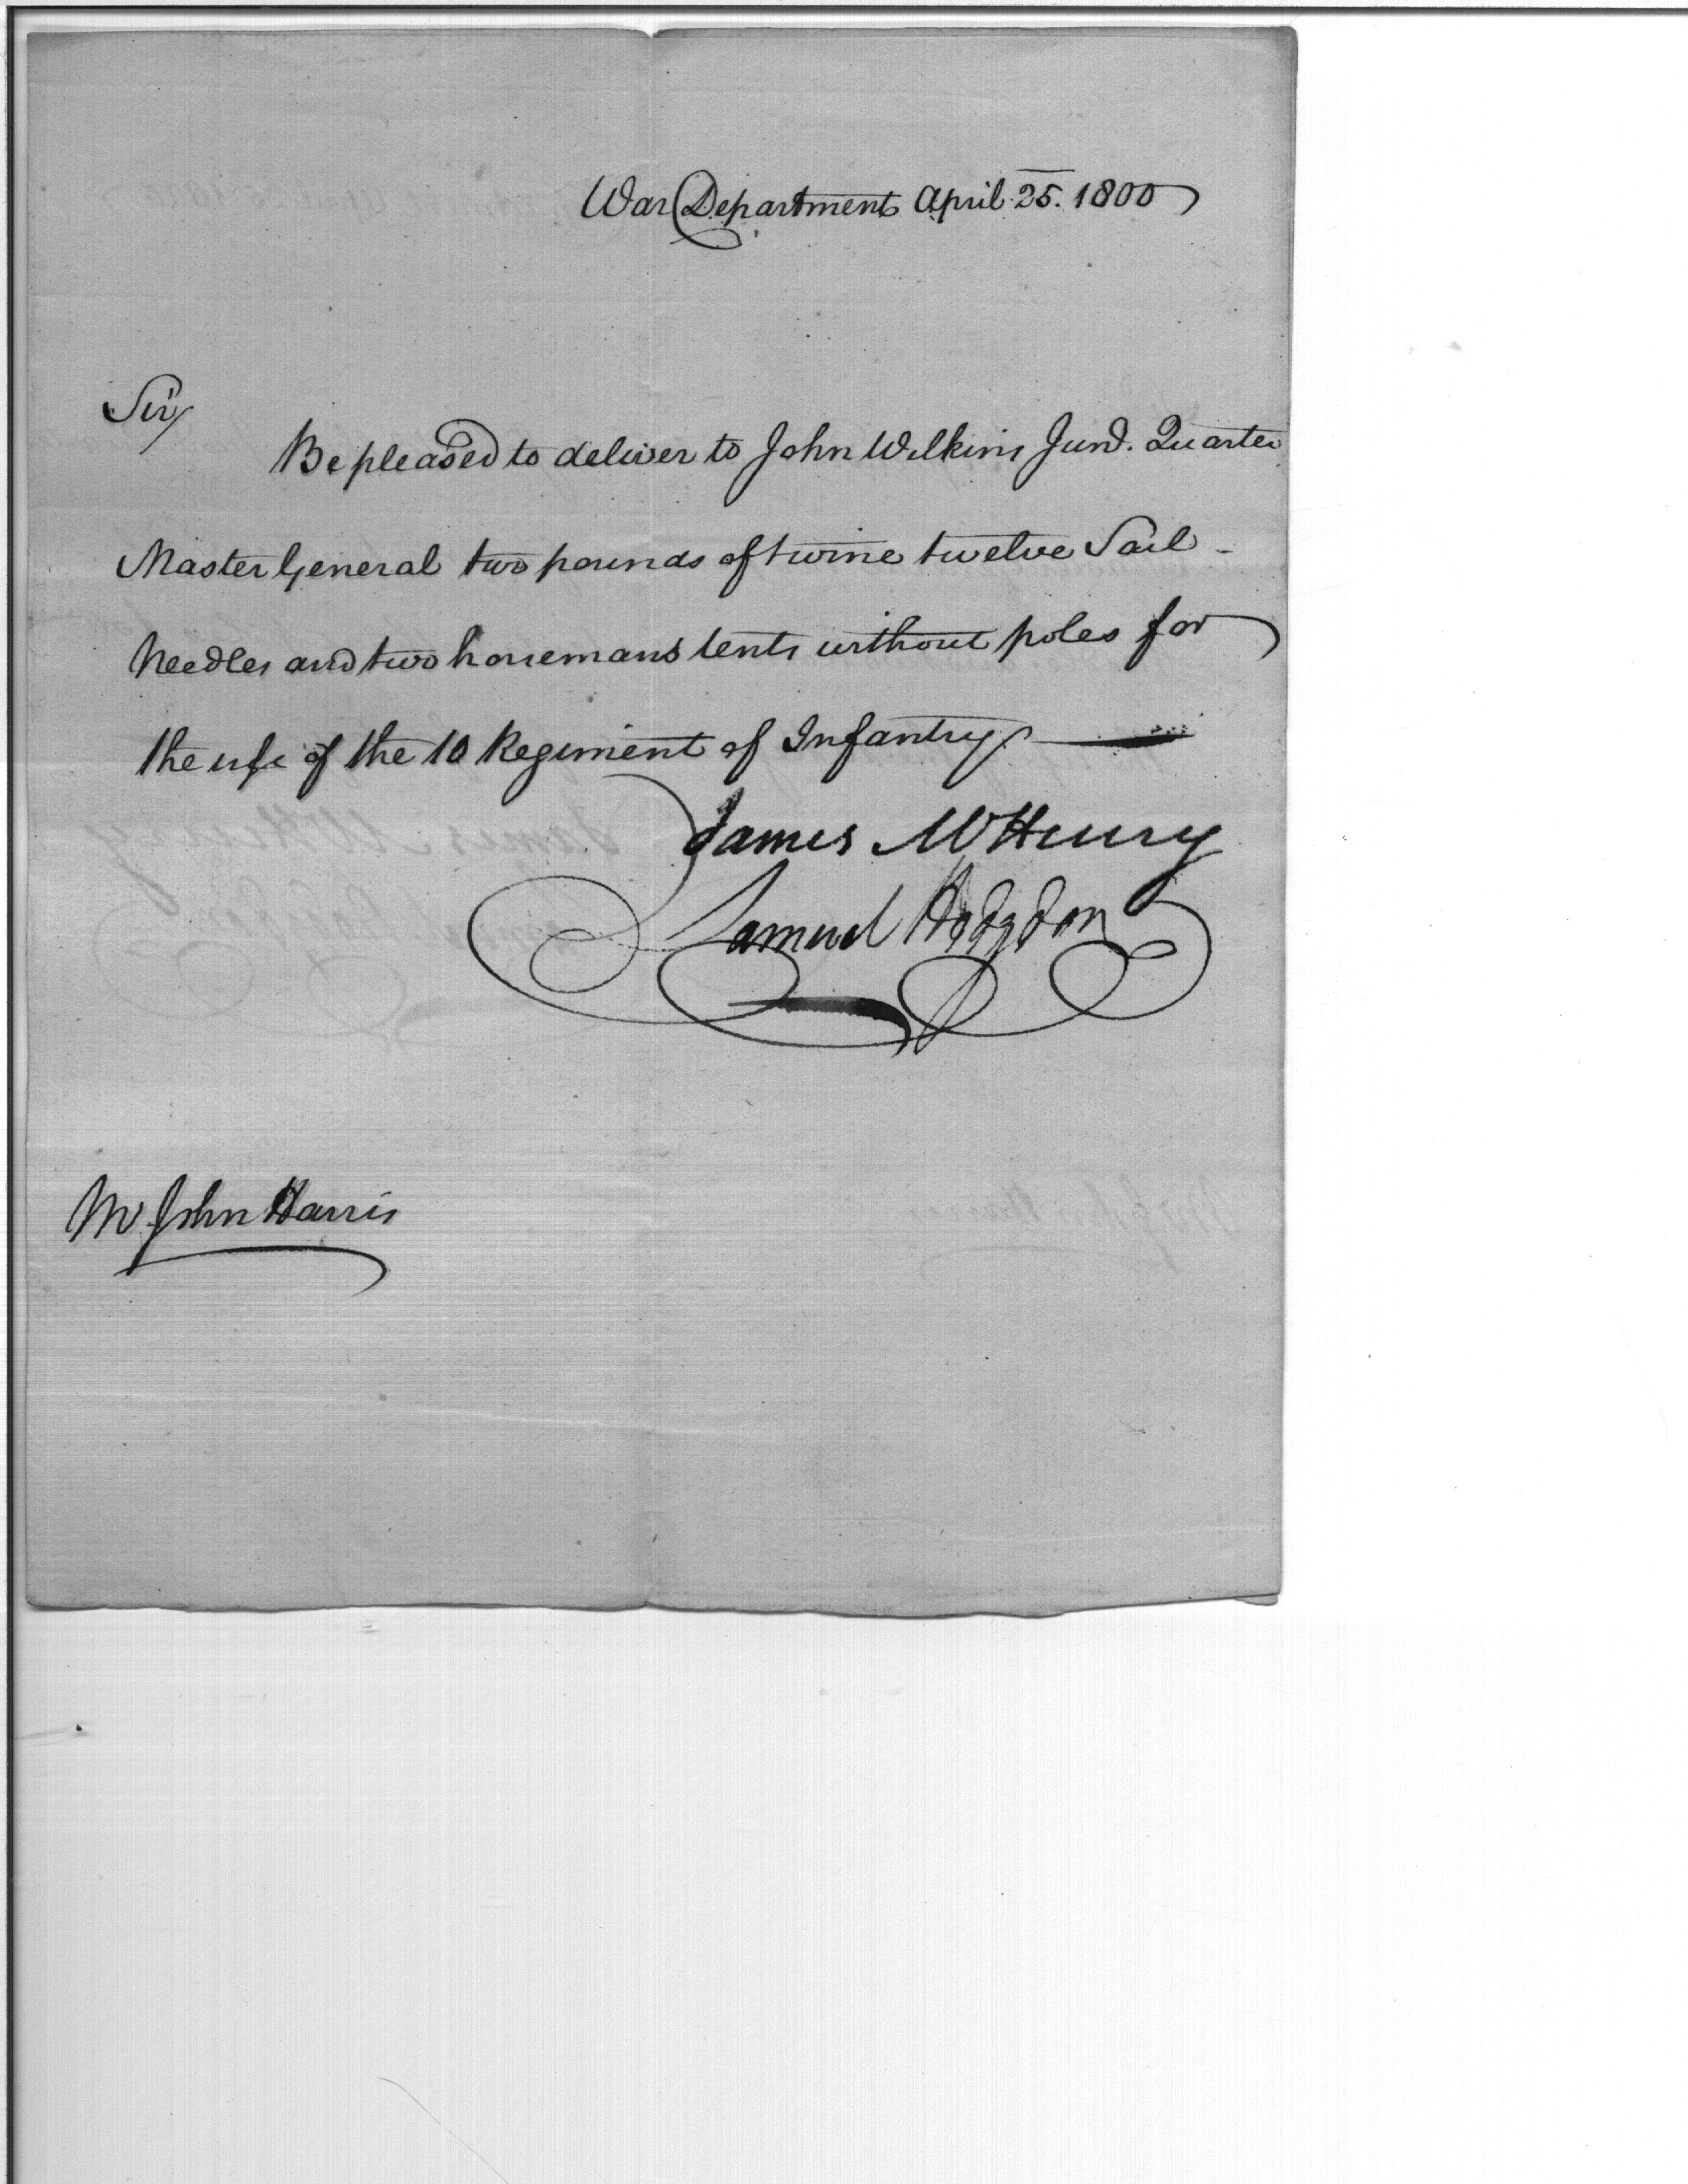 War Department April 25. 1800
Sir,
Be pleased to deliver to John Wilkins Junr. Quarter
Master General two pounds of twine twelve Sail -
Needles and two horsemans tents without poles for
the use of the 10 Regiment of Infantry
James McHenry
Samuel Hodgdon
Mr John Harris